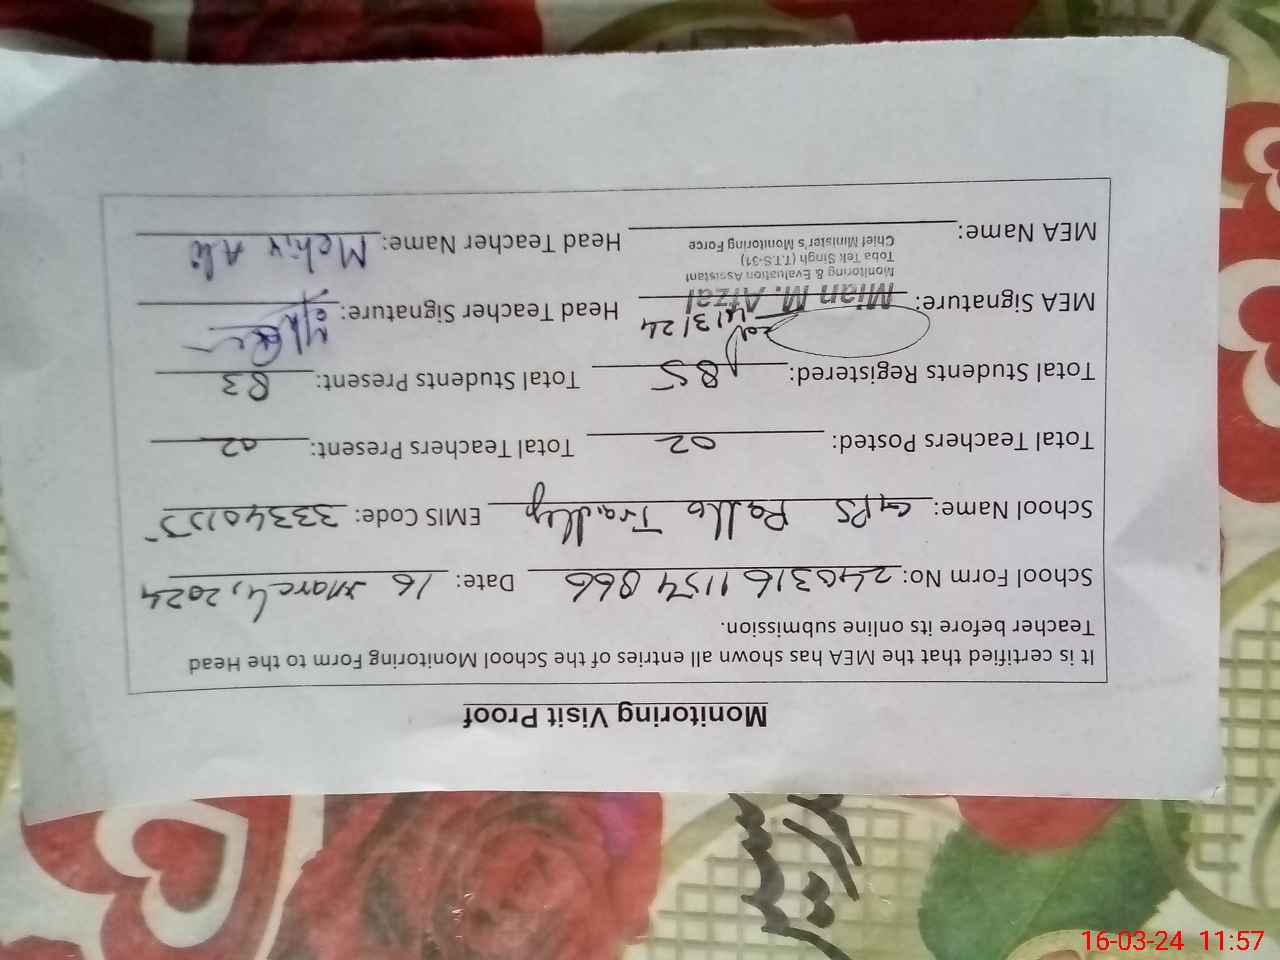 Monitoring Visit Proof
It is certified that the MEA has shown all entries of the School Monitoring Form to the Head
Teacher before its online submission.
School Form No: 240316 1154 866 Date: 16 March, 2024
School Name: GPS Palla EMIS Code: 33340155
Total Teachers Posted: 02 Total Teachers Present: 02
Total Students Registered: 85 Total Students Present: 83
MEA Signature: Head Teacher Signature:
Mian M. Afzal
Monitoring & Evaluation Assistant
Toba Tek Singh (T.T.S-31)
Chief Minister's Monitoring Force
MEA Name: Head Teacher Name: Ali
16-03-24 11:57